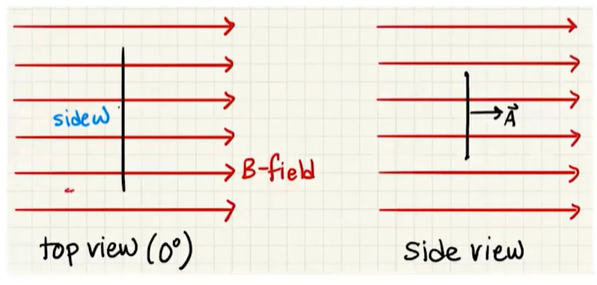 side w
B-field
A
top view (0°)
side view